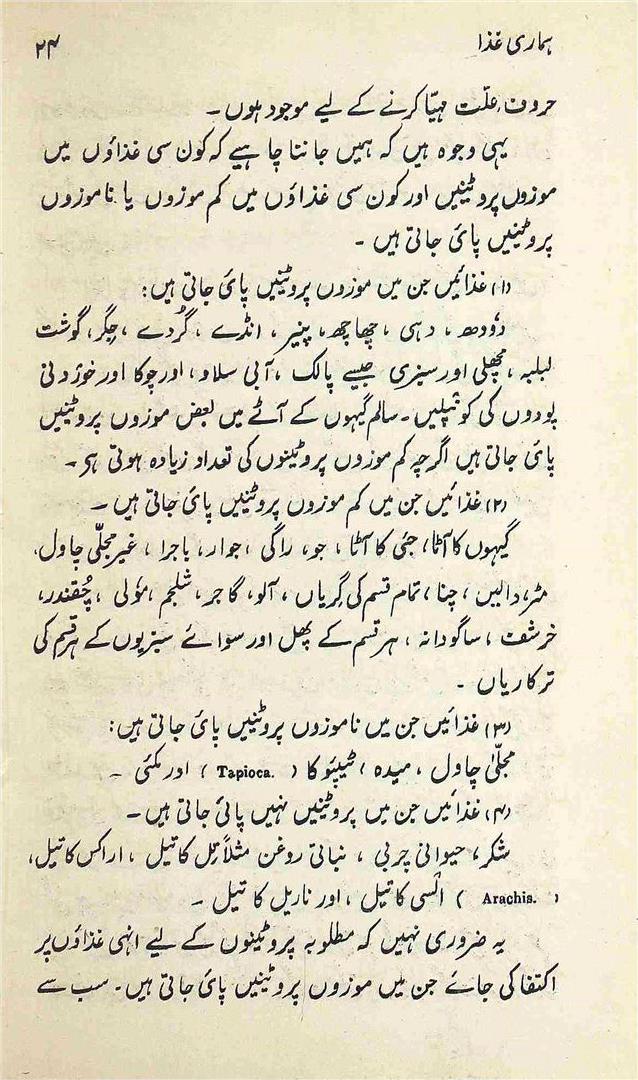 ہماری غذا ۲۴
حروف علّت مہیّا کرنے کے لیے موجود ہوں۔
یہی وجوہ ہیں کہ ہمیں جاننا چاہیے کہ کون سی غذاؤں میں
موزوں پروٹینیں اور کون سی غذاؤں میں کم موزوں یا ناموزوں
پروٹینیں پائی جاتی ہیں۔
(۱) غذائیں جن میں موزوں پروٹینیں پائی جاتی ہیں:
دُودھ، دہی، چھاچھ، پنیر، انڈے، گُردے، جِگر، گوشت
لبلبہ، مچھلی اور سبزی جیسے پالک، آبی سلاد، اور چوکا اور خوردنی
پودوں کی کونپلیں۔ سالم گیہوں کے آٹے میں بعض موزوں پروٹینیں
پائی جاتی ہیں اگرچہ کم موزوں پروٹینوں کی تعداد زیادہ ہوتی ہی۔
(۲) غذائیں جن میں کم موزوں پروٹینیں پائی جاتی ہیں۔
گیہوں کا آٹا، جئی کا آٹا، جو، راگی، جوار، باجرا، غیر مجلّی چاول،
مٹر، دالیں، چنا، تمام قسم کی گِریاں، آلو، گاجر، شلجم، مؤلی، چُقندر،
خرشف، ساگودانہ، ہر قسم کے پھل اور سوائے سبزیوں کے ہر قسم کی
ترکاریاں۔
(۳) غذائیں جن میں ناموزوں پروٹینیں پائی جاتی ہیں:
مجلّیٰ چاول، میدہ، ٹیپیُوکا (Tapioca.) اور مکئی۔
(۴) غذائیں جن میں پروٹینیں نہیں پائی جاتی ہیں۔
شکر، حیوانی چربی، نباتی روغن مثلاً تِل کا تیل، اراکس کا تیل،
(Arachis.) السی کا تیل، اور ناریل کا تیل۔
یہ ضروری نہیں کہ مطلوبہ پروٹینوں کے لیے انہی غذاؤں پر
اکتفا کی جائے جن میں موزوں پروٹینیں پائی جاتی ہیں۔ سب سے